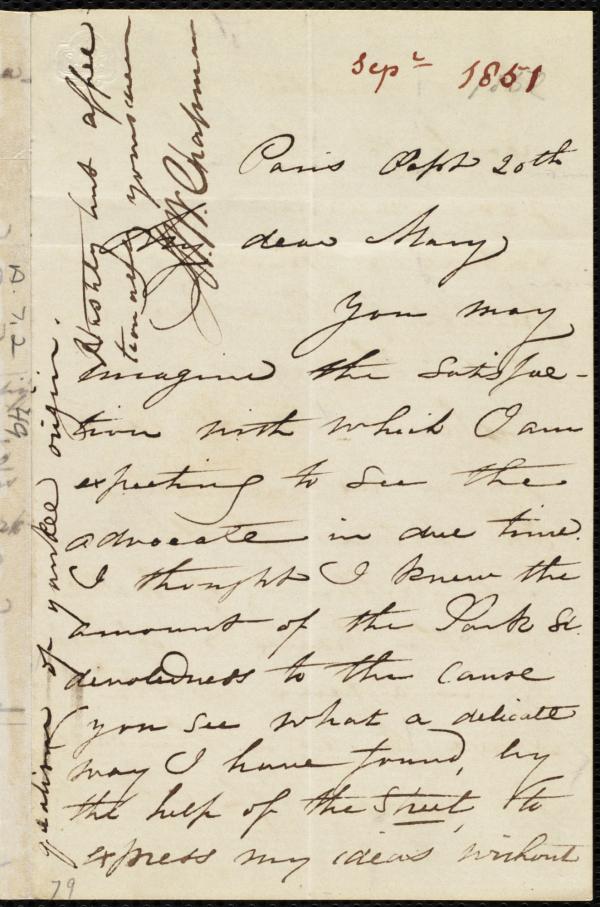 Sepr 1851
Paris Sept 20th
My dear Mary
You may
imagine the satisfac-
tion with which I am
expecting to see the
advocate in due time.
I thought I knew the
amount of the Park St.
devotedness to the cause
(you see what a delicate
way I have found, by
the help of the Street, to
express my ideas without
Hastily but affec
tionately yours ever
M. W. Chapman
of yankee origin.
79